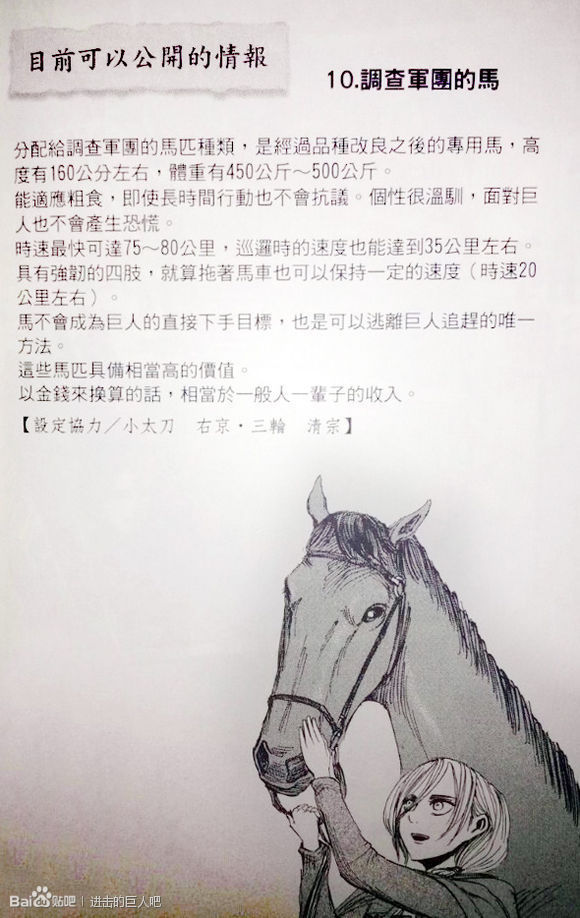 目前可以公開的情報
10.調查軍團的馬
分配給調查軍團的馬匹種類，是經過品種改良之後的專用馬，高
度有160公分左右，體重有450公斤～500公斤。
能適應粗食，即使長時間行動也不會抗議。個性很溫馴，面對巨
人也不會產生恐慌。
時速最快可達75～80公里，巡邏時的速度也能達到35公里左右。
具有強韌的四肢，就算拖著馬車也可以保持一定的速度（時速20
公里左右）。
馬不會成為巨人的直接下手目標，也是可以逃離巨人追趕的唯一
方法。
這些馬匹具備相當高的價值。
以金錢來換算的話，相當於一般人一輩子的收入。
【設定協力／小太刀　右京・三輪　清宗】
Bai du 贴吧 | 进击的巨人吧